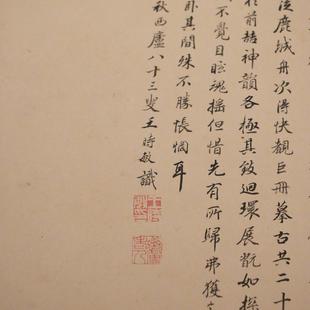 鹿城舟次得快觀巨冊摹古共二十
前喆神韻各極其致迴環展翫如探
不覺目眩魂搖但惜先有所歸弗獲
卧其間殊不勝悵惘耳
秋西廬八十三叟王時敏識